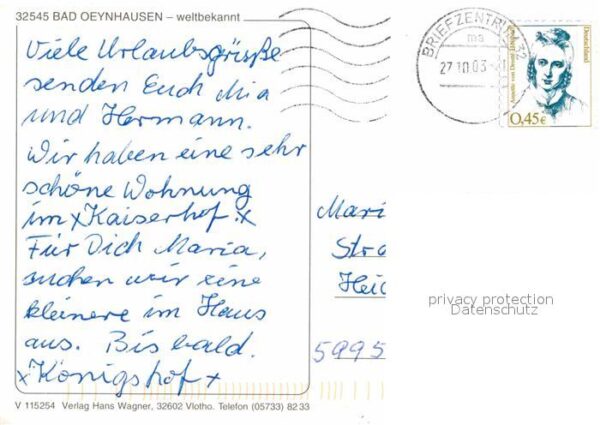 32545 BAD OEYNHAUSEN – weltbekannt
Viele Urlaubsgrüße
senden Euch Mia
und Hermann.
Wir haben eine sehr
schöne Wohnung
im x Kaiserhof. x
Für Dich Maria,
suchen wir eine
kleinere im Haus
aus. Bis bald.
x Königshof x
V 115254 Verlag Hans Wagner, 32602 Vlotho. Telefon (05733) 82 33
BRIEFZENTRUM 32
ma
27.10.03
Annette von Droste-Hülshoff
Deutschland
0,45€
Mari
Stra
Heid
5995
privacy protection
Datenschutz